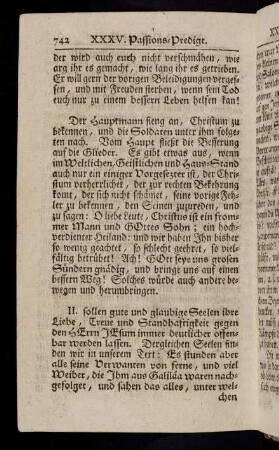 742 XXXV. Passions-Predigt.
der wird auch euch nicht verschmähen, wie
arg ihr es gemacht, wie lang ihr es getrieben.
Er will gern der vorigen Beleidigungen verges-
sen, und mit Freuden sterben, wenn sein Tod
euch nur zu einem bessern Leben helfen kan!
Der Hauptmann fieng an, Christum zu
bekennen, und die Soldaten unter ihm folge-
ten nach. Vom Haupt fließt die Besserung
auf die Glieder. Es gibt etwas aus, wenn
im Weltlichen, Geistlichen und Haus-Stand
auch nur ein einiger Vorgesetzter ist, der Chri-
stum verherrlichet, der zur rechten Bekehrung
komt, der sich nicht schämet, seine vorige Feh-
ler zu bekennen, den Seinen zuzureden, und
zu sagen: O liebe Leute, Christus ist ein from-
mer Mann und GOttes Sohn; ein hoch-
verdienter Heiland; und wir haben Ihn bisher
so wenig geachtet, so schlecht geehrt, so viel-
fältig betrübet! Ach! GOtt seye uns grosen
Sündern gnädig, und bringe uns auf einen
bessern Weg! Solches würde auch andere be-
wegen und herumbringen.
II. sollen gute und glaubige Seelen ihre
Liebe, Treue und Standhaftigkeit gegen
den HErrn JEsum immer deutlicher offen-
bar werden lassen. Dergleichen Seelen fin-
den wir in unserem Text: Es stunden aber
alle seine Verwanten von ferne, und viel
Weiber, die Ihm aus Galiläa waren nach-
gefolget, und sahen das alles, unter wel-
chen